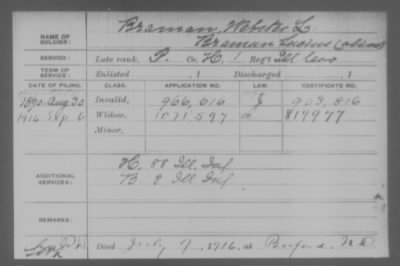 NAME OF SOLDIER: Braman, Webster L.
Braman Lucius (alias)
SERVICE: Late rank, P. Co. H. 1 Reg't Ill Cav
TERM OF SERVICE: Enlisted , 1 Discharged , 1
DATE OF FILING. CLASS. APPLICATION NO. LAW. CERTIFICATE NO.
1890 Aug 30 Invalid, 966,616 J 903,816
1916 Sep 6 Widow, 1071597 819977
Minor,
ADDITIONAL SERVICES: H. 88 Ill Inf.
B 8 Ill Inf
REMARKS:
Died July 7, 1916, at N D